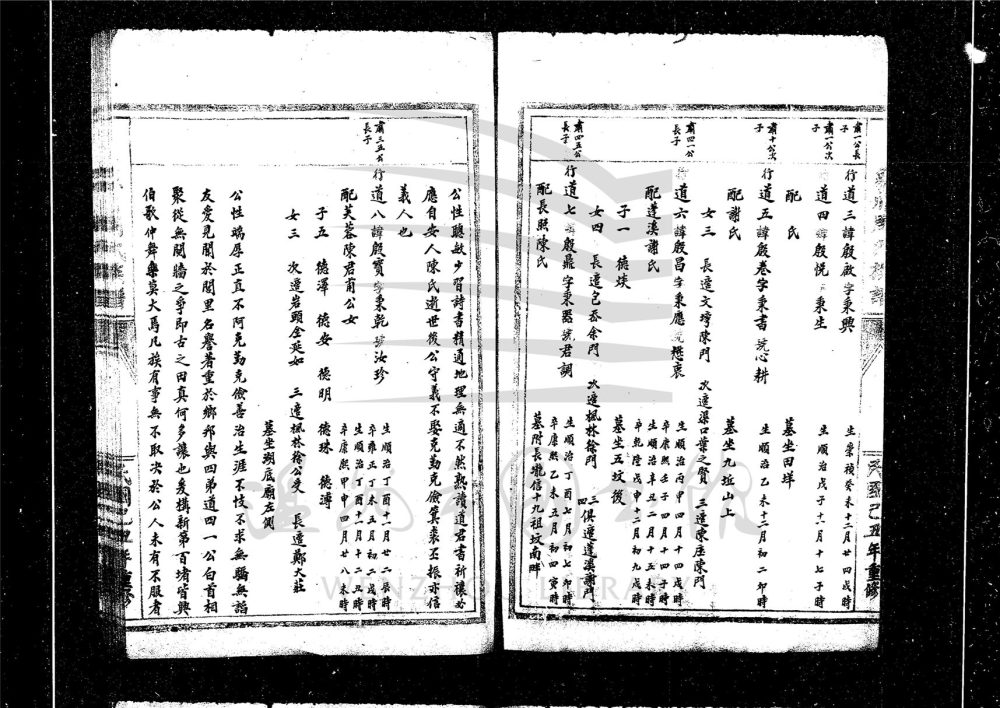 肅一公長子
行道三諱殷啟字秉興
生崇禎癸未十二月廿四戌時
肅一公次子
行道四諱殷悅秉生
生順治戊子十二月十七子時
配氏
墓坐田垟
肅十公次子
行道五諱殷卷字秉書號心耕
生順治乙未十二月初二卯時
配謝氏
墓坐九近山上
女三 長適文墺陳門 次適渠口葉之賢 三適陳庄陳門
肅四一公長子
行道六諱殷昌字秉應號懋衷
生順治丙申四月十四戌時
卒康熙壬子四月十四子時
配蓬溪謝氏
生順治辛丑二月十二戌時
卒乾隆戊申十二月初九戌時
子一 德燧
墓坐五坟後
女四 長適包岙余門 次適楓林徐門 三四俱適蓬溪謝門
肅四五公長子
行道七諱殷鼎字秉器號君調
生順治丁酉七月初七卯時
卒康熙乙未五月初四寅時
配長照陳氏
墓附長壠信十九祖坟南畔
民國己丑年重修
公性聰敏少習詩書精通地理無適不然熟讀道君書祈禳必
應自安人陳氏逝世後公守義不娶克勤克儉箕裘丕振亦信
義人也
肅三五公長子
行道八諱殷寶字秉乾號汝珍
生順治丁酉十一月廿二辰時
卒雍正丁未五月初二戌時
配芙蓉陳君莆公女
生順治丁酉十一月十二丑時
卒康熙甲申四月廿八未時
子五 德澤 德安 德明 德珠 德溥
女三 次適岩頭金延如 三適楓林徐公受 長適鄭大莊
墓坐湖底廟左側
公性端厚正直不阿克勤克儉善治生涯不忮不求無驕無諂
友愛見聞於閭里名譽著重於鄉邦與四弟道四一公白首相
聚從無鬩牆之爭即古之田真何多讓也爰構新第百堵皆興
伯歌仲舞樂莫大焉凡族有事無不取决於公人未有不服者
WENZHOU LIBRARY